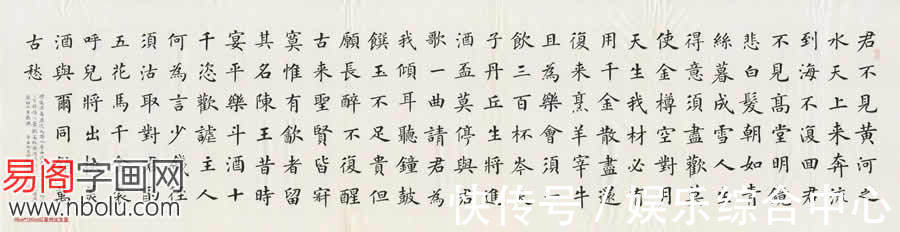 君不見黄河之
水天上來奔流
到海不復回君
不見高堂明鏡
悲白髮朝如青
絲暮成雪人生
得意須盡歡莫
使金樽空對月
天生我材必有
用千金散盡還
復來烹羊宰牛
且為樂會須一
飲三百杯岑夫
子丹丘生將進
酒盃莫停與君
歌一曲請君為
我傾耳聽鐘鼓
饌玉不足貴但
願長醉不復醒
古来聖賢皆寂
寞惟有飲者留
其名陳王昔時
宴平樂斗酒十
千恣歡謔主人
何為言少徑
須沽取對
五花馬千
呼兒將出
酒與爾同萬
古愁
易阁字画网
www.nbolu.com
快传号/娱乐综合中心